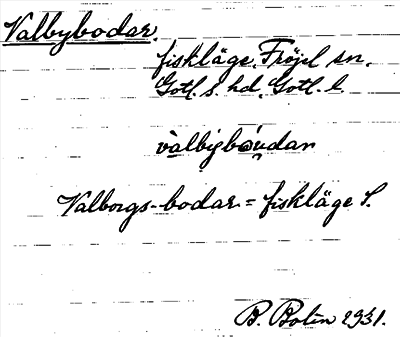 Valbybodar.
fiskläge, Fröjel sn.
Gotl. s. hd, Gotl. l.
valbybóudar
Valborgs-bodar = fiskläge S.
B. Bolin 1931.